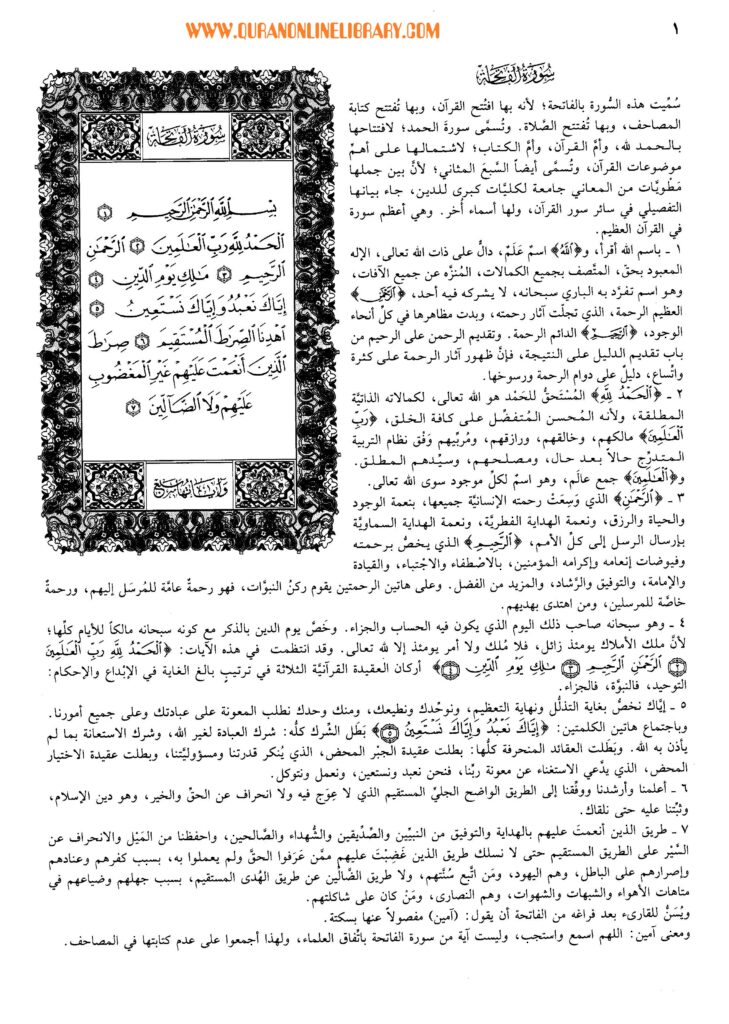 WWW.QURANONLINELIBRARY.COM
١
سُورَةُ الفَاتِحَةِ
سُورَةُ الفَاتِحَةِ
بِسْمِ اللَّهِ الرَّحْمَٰنِ الرَّحِيمِ ١
الْحَمْدُ لِلَّهِ رَبِّ الْعَالَمِينَ ٢ الرَّحْمَٰنِ
الرَّحِيمِ ٣ مَالِكِ يَوْمِ الدِّينِ ٤
إِيَّاكَ نَعْبُدُ وَإِيَّاكَ نَسْتَعِينُ ٥
اهْدِنَا الصِّرَاطَ الْمُسْتَقِيمَ ٦ صِرَاطَ
الَّذِينَ أَنْعَمْتَ عَلَيْهِمْ غَيْرِ الْمَغْضُوبِ
عَلَيْهِمْ وَلَا الضَّالِّينَ ٧
وآياتها سبع
سُمِّيت هذه السُّورة بالفاتحة؛ لأنه بها افتُتح القرآن، وبها تُفتتح كتابة
المصاحف، وبها تُفتتح الصَّلاة. وتُسمَّى سورةَ الحمد؛ لافتتاحها
بالحمد لله، وأمَّ القرآن، وأمَّ الكتاب؛ لاشتمالها على أهمّ
موضوعات القرآن، وتُسمَّى أيضاً السَّبعَ المثاني؛ لأنَّ بين جملها
مَطْويَّات من المعاني جامعة لكليَّات كبرى للدين، جاء بيانها
التفصيلي في سائر سور القرآن، ولها أسماء أُخر. وهي أعظم سورة
في القرآن العظيم.
١ - باسم الله أقرأ، و﴿اللَّهُ﴾ اسم عَلَم، دالٌّ على ذات الله تعالى، الإله
المعبود بحقّ، المتَّصف بجميع الكمالات، المُنزَّه عن جميع الآفات،
وهو اسم تفرَّد به الباري سبحانه، لا يشركه فيه أحد، ﴿الرَّحْمَٰنِ﴾
العظيم الرحمة، الذي تجلَّت آثار رحمته، وبدت مظاهرها في كلّ أنحاء
الوجود، ﴿الرَّحِيمِ﴾ الدائم الرحمة. وتقديم الرحمن على الرحيم من
باب تقديم الدليل على النتيجة، فإنَّ ظهور آثار الرحمة على كثرة
واتِّساع، دليلٌ على دوام الرحمة ورسوخها.
٢ - ﴿الْحَمْدُ لِلَّهِ﴾ المُسْتَحِقُّ للحَمْد هو الله تعالى، لكمالاته الذاتيَّة
المطلقة، ولأنه المُحسن المتفضّل على كافة الخلق، ﴿رَبِّ
الْعَالَمِينَ﴾ مالكهم، وخالقهم، ورازقهم، ومُربِّيهم وَفْق نظام التربية
المتدرِّج حالاً بعد حال، ومصلحهم، وسيِّدهم المطلق.
و﴿الْعَالَمِينَ﴾ جمع عالَم، وهو اسمٌ لكلّ موجود سوى الله تعالى.
٣ - ﴿الرَّحْمَٰنِ﴾ الذي وَسِعَتْ رحمته الإنسانيَّة جميعها، بنعمة الوجود
والحياة والرزق، ونعمة الهداية الفطريَّة، ونعمة الهداية السماويَّة
بإرسال الرسل إلى كلّ الأمم، ﴿الرَّحِيمِ﴾ الذي يخصُّ برحمته
وفيوضات إنعامه وإكرامه المؤمنين، بالاصْطفاء والاجْتباء، والقيادة
والإمامة، والتوفيق والرَّشاد، والمزيد من الفضل. وعلى هاتين الرحمتين يقوم ركنُ النبوَّات، فهو رحمةٌ عامَّة للمُرسَل إليهم، ورحمةٌ
خاصَّة للمرسلين، ومن اهتدى بهديهم.
٤ - وهو سبحانه صاحب ذلك اليوم الذي يكون فيه الحساب والجزاء. وخَصَّ يوم الدين بالذكر مع كونه سبحانه مالكاً للأيام كلّها؛
لأنَّ ملك الأملاك يومئذ زائل، فلا مُلك ولا أمر يومئذ إلا لله تعالى. وقد انتظمت في هذه الآيات: ﴿الْحَمْدُ لِلَّهِ رَبِّ الْعَالَمِينَ
٢ الرَّحْمَٰنِ الرَّحِيمِ ٣ مَالِكِ يَوْمِ الدِّينِ ٤﴾ أركان العقيدة القرآنيَّة الثلاثة في ترتيبٍ بالغ الغاية في الإبْداع والإحكام:
التوحيد، فالنبوَّة، فالجزاء.
٥ - إيَّاك نخصُّ بغاية التذلُّل ونهاية التعظيم، ونوحّدك ونطيعك، ومنك وحدك نطلب المعونة على عبادتك وعلى جميع أمورنا.
وباجتماع هاتين الكلمتين: ﴿إِيَّاكَ نَعْبُدُ وَإِيَّاكَ نَسْتَعِينُ ٥﴾ بَطَل الشّرك كلُّه: شرك العبادة لغير الله، وشرك الاستعانة بما لم
يأذن به الله. وبَطَلت العقائد المنحرفة كلُّها: بطلت عقيدة الجبْر المحض، الذي يُنكر قدرتنا ومسؤوليَّتنا، وبطلت عقيدة الاختيار
المحض، الذي يدَّعي الاستغناء عن معونة ربِّنا، فنحن نعبد ونستعين، ونعمل ونتوكل.
٦ - أعلمنا وأرشدنا ووفِّقنا إلى الطريق الواضح الجليّ المستقيم الذي لا عِوَج فيه ولا انحراف عن الحقّ والخير، وهو دين الإسلام،
وثبِّتنا عليه حتى نلقاك.
٧ - طريق الذين أنعمتَ عليهم بالهداية والتوفيق من النبيّين والصِّدِّيقين والشُّهداء والصَّالحين، واحفظنا من المَيْل والانحراف عن
السَّيْر على الطريق المستقيم حتى لا نسلك طريق الذين غَضِبْتَ عليهم ممَّن عَرَفوا الحقَّ ولم يعملوا به، بسبب كفرهم وعنادهم
وإصرارهم على الباطل، وهم اليهود، ومَن اتَّبع سُنَّتهم، ولا طريق الضَّالِّين عن طريق الهُدى المستقيم، بسبب جهلهم وضياعهم في
متاهات الأهواء والشبهات والشهوات، وهم النصارى، ومَنْ كان على شاكلتهم.
ويُسَنُّ للقارىء بعد فراغه من الفاتحة أن يقول: (آمين) مفصولاً عنها بسكتة.
ومعنى آمين: اللهم اسمع واستجب، وليست آية من سورة الفاتحة باتِّفاق العلماء، ولهذا أجمعوا على عدم كتابتها في المصاحف.